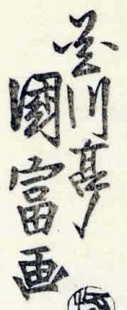 花川亭
國富画